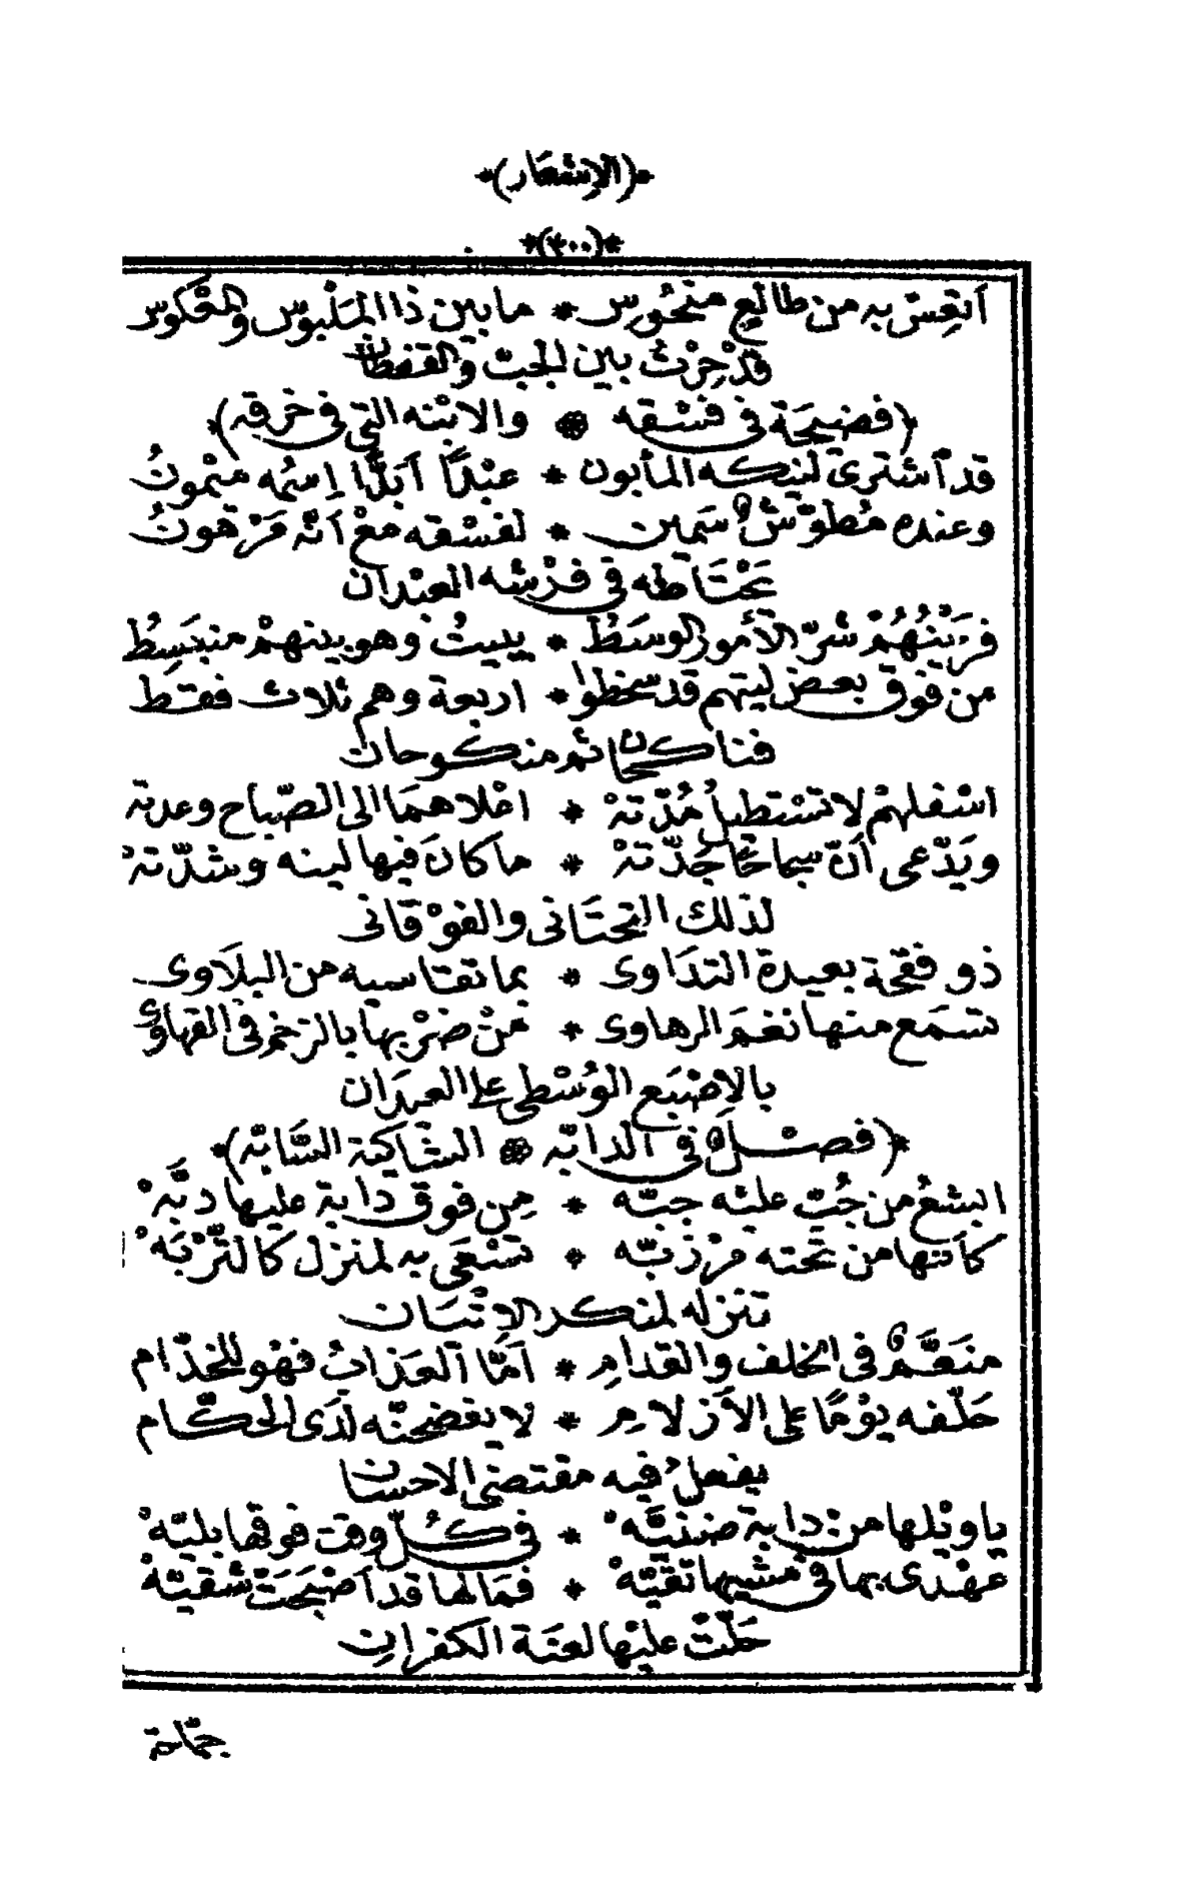 *(الاشعار)*
*(٣٠٠)*
اَتعِسْ به من طالعٍ منحُوسِ * ما بين ذا الملْبوسِ والمعْكوسِ
قدْ حِرْتُ بين الجبّ والقفطان
(فضيحَة في فسْقه * والابْنه التي في خرقه)
قد اشترى لنيكه المأبون * عبْدًا اَبدًا اِسمُه ميْمونُ
وعنده مُطوّشٌ سَمين * لفسْقه معْ اَنّه مَرْهونُ
يحْتَاطه في فرْشه العبْدان
فرَيْنُهُمْ شرّ الأمور الوسَطُ * يبيتُ وهو بينهمْ منبَسِطُ
من فوق بعض ليتهم قد سخطوا * اربعة وهم ثلاث فقط
فناكحان ثم منكوحان
اسْفلهمْ لا تسْتطيلُ مُدّتهْ * اعْلاهمَا الى الصّباح وعدته
ويَدّعى اَنّ سِحاحًا جَدّتهْ * ما كانَ فيها لينه وشدّتهْ
لذلك التحتَانى والفوْقانى
ذو فقحة بعيدة التدَاوى * بما تقاسيه من البلَاوى
تسَمع منها نغمَ الرهاوى * مَنْ ضرْبها بالزخم في القهاوى
بالاِصْبَع الوُسْطى على العيدَان
*(فصْلٌ في الدابّه * الشاكيَة السَّابّه)*
البشعُ من جُبّ عليْه جبّه * مِن فوق دابة عليها دبَّهْ
كأنّها من تحته مرْزبّه * تسْعَى به لمنزل كالتّرْبَهْ
تنزله لمنكر الاِتْيَان
منَعَّمٌ في الخلف والقدامِ * اَمَّا اَلعَذابُ فهْو للخدّام
حَلّفه يوْمًا على الأزلامِ * لا يفضحنّه لدَى الحكّام
يفعلُ فيه مقتضى الاحسان
يا ويْلها منْ دابة ضننيَّهْ * في كُلّ وقت فوقها بليّهْ
عهْدى بها في مَشيها تقيّهْ * فمَا لها قد اَصْبَحَتْ شقيّهْ
حَلّتْ عليْها لعنَة الكفرانِ